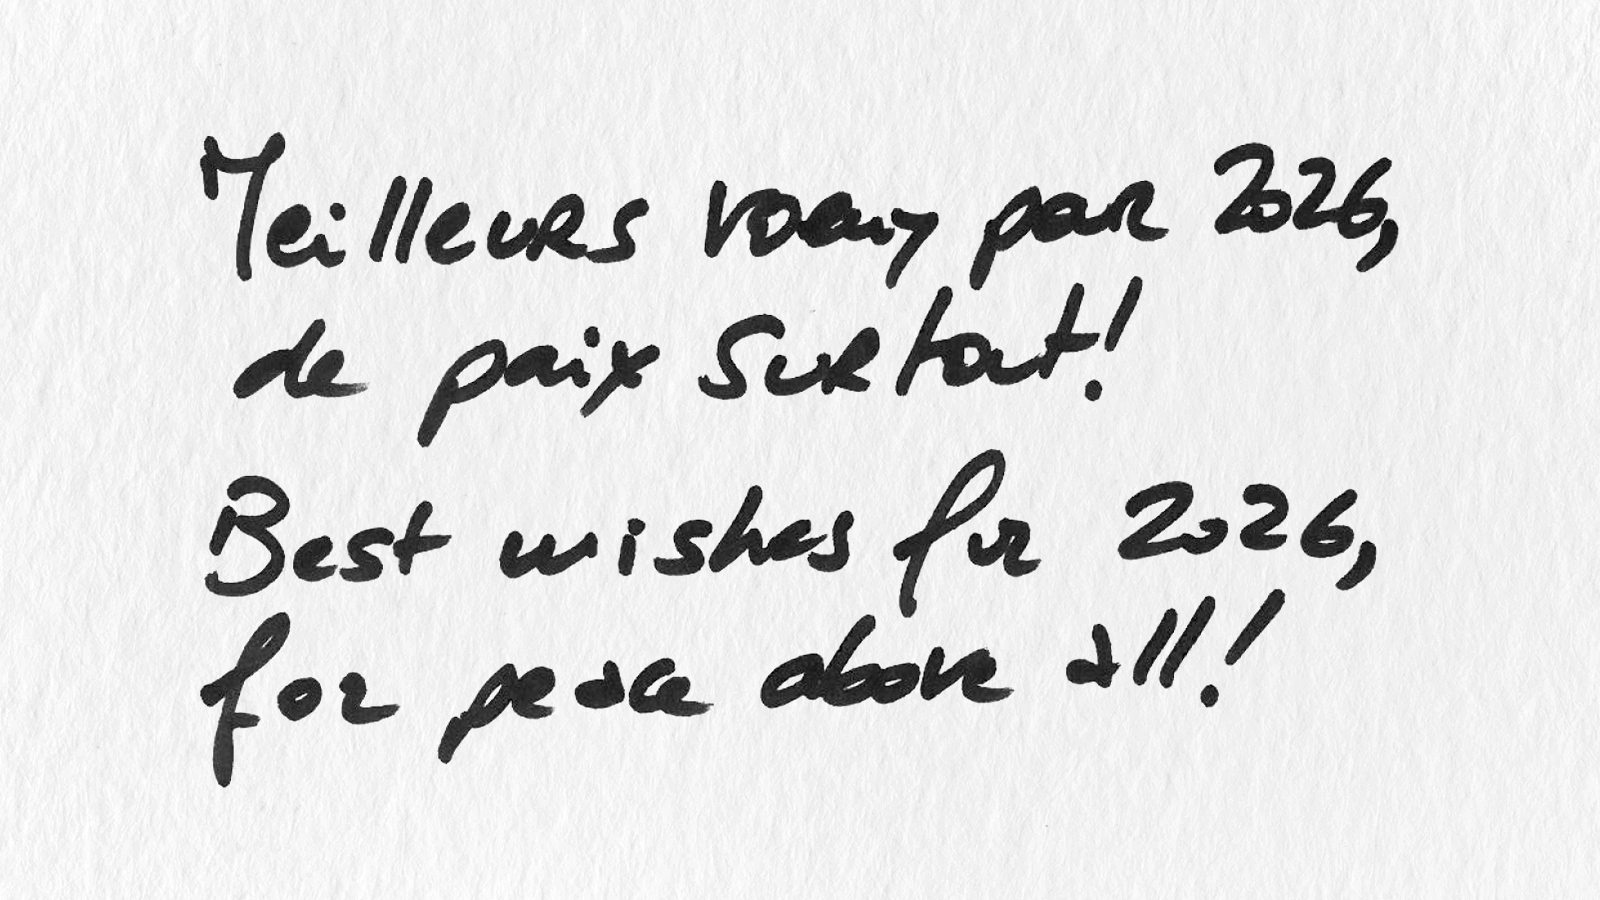 Meilleurs voeux par 2026,
de paix surtout!
Best wishes for 2026,
for peace above all!